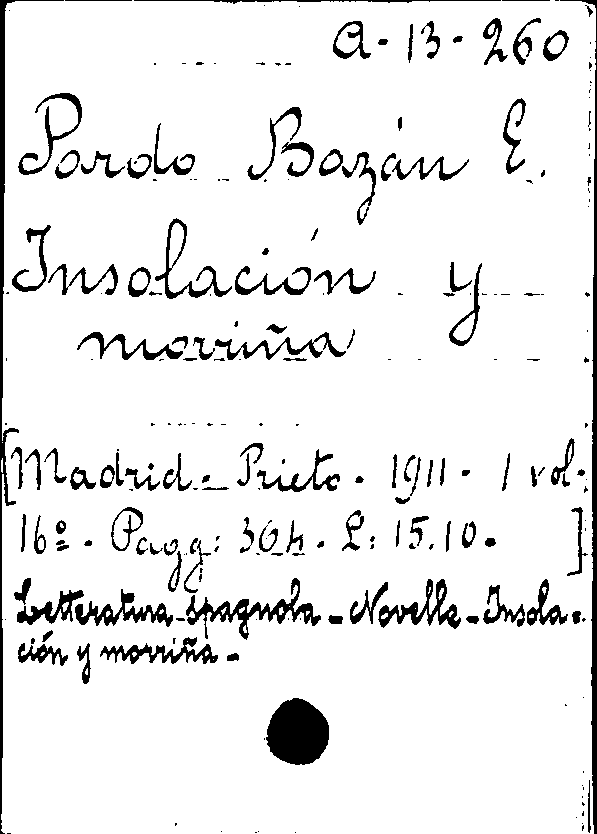 A-13-260
Pardo Bazán E.
Insolación y
morriña
[Madrid - Prieto - 1911 - 1 vol.
16º - Pagg: 304 - L: 15.10 - ]
Letteratura spagnola - Novelle - Insola-
ción y morriña -